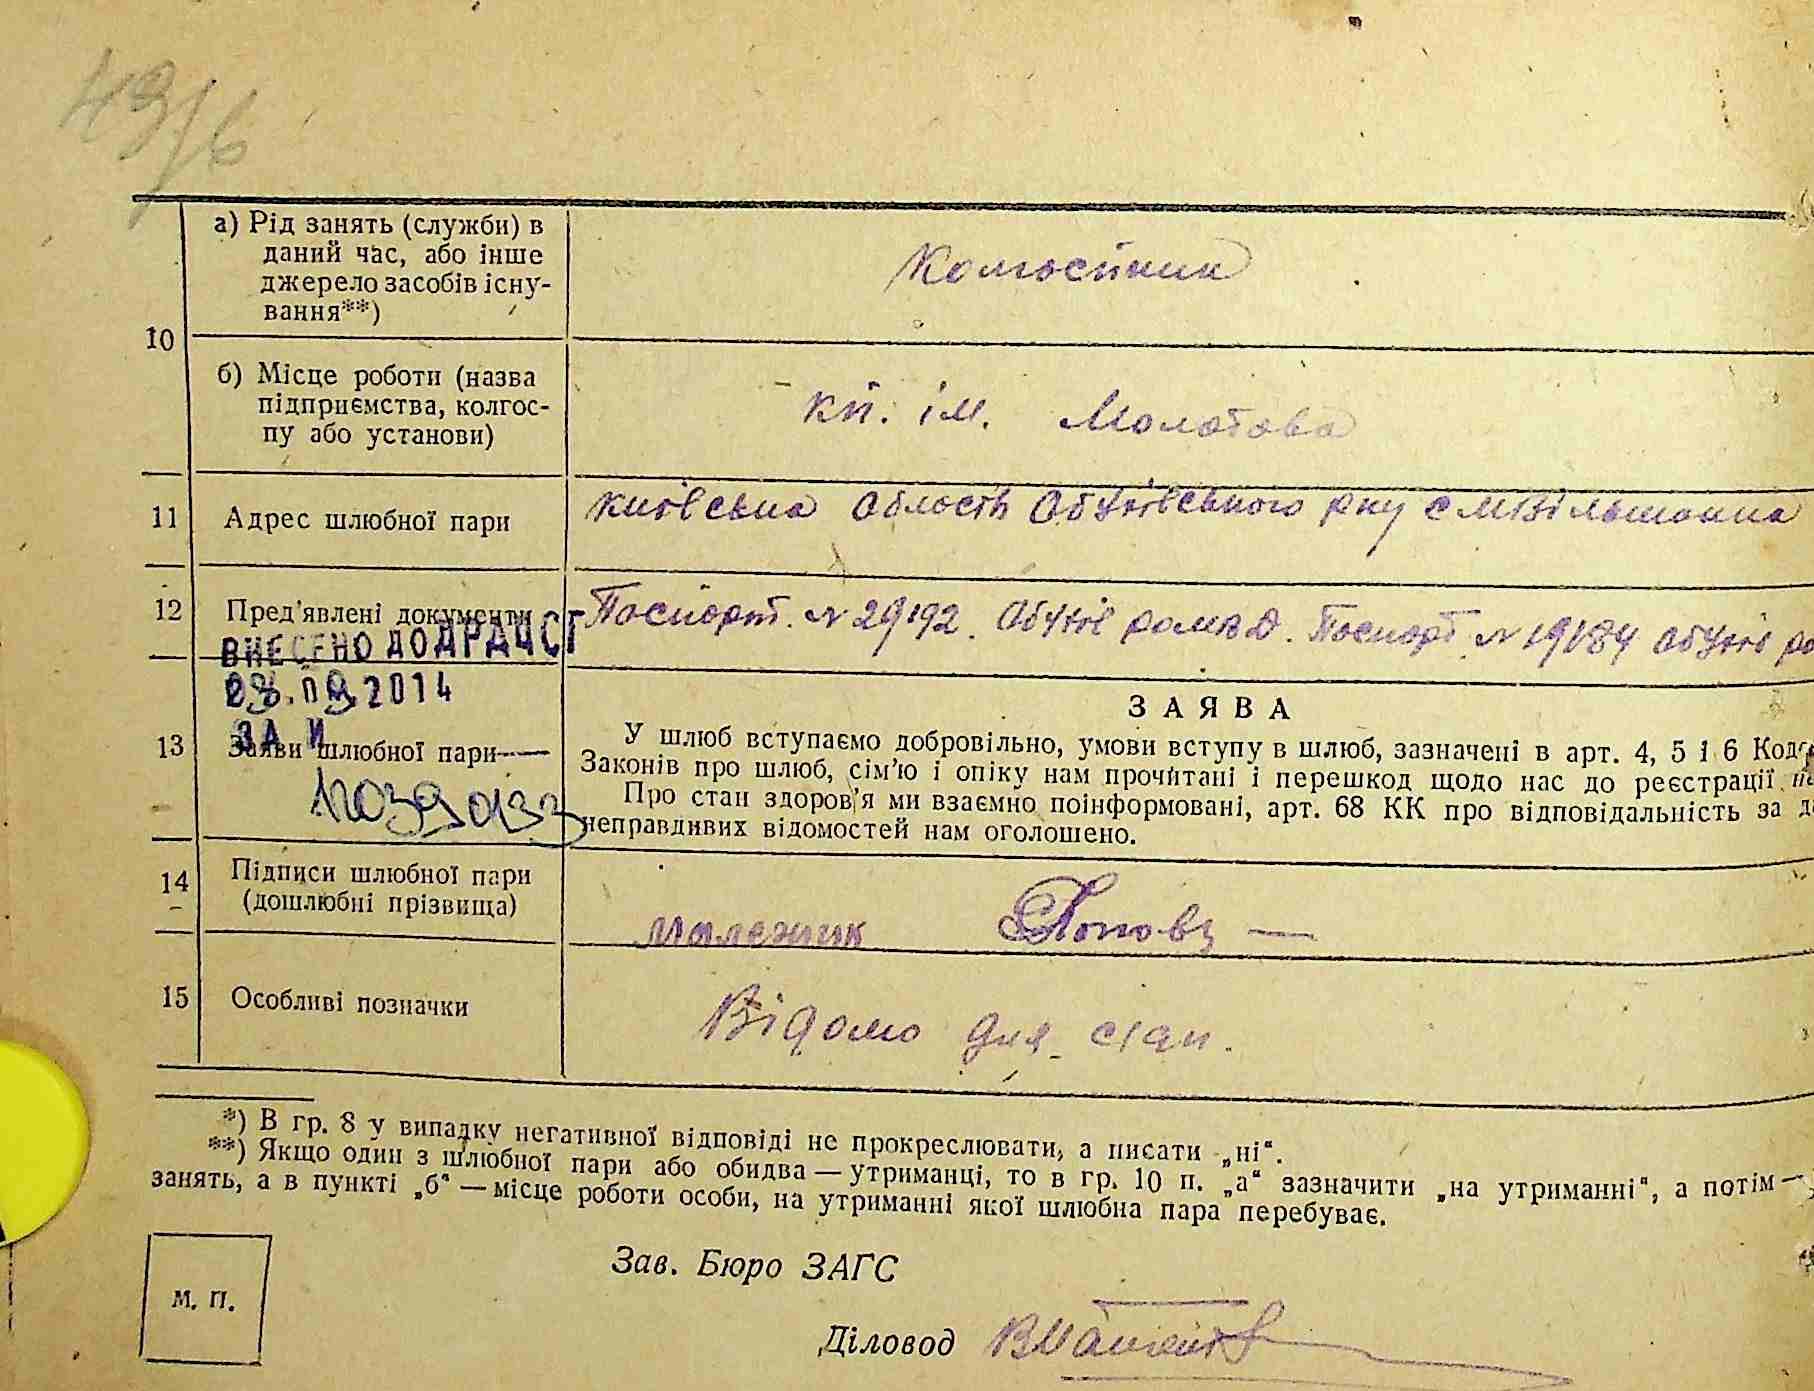 43/6
а) Рід занять (служби) в
даний час, або інше
джерело засобів існу-
вання**)
Колгоспник
10
б) Місце роботи (назва
підприємства, колгос-
пу або установи)
кп. ім. Молотова
11 Адрес шлюбної пари
Київська область Обухівського р-ну с М Вільшанка
12 Пред'явлені документи
Паспорт. N 29192. Обухів Паспорт N 19184 Обухів
ВНЕСЕНО ДО ДРАЦСГ
2014
ЗА И
13 Заяви шлюбної пари
ЗАЯВА
У шлюб вступаємо добровільно, умови вступу в шлюб, зазначені в арт. 4, 5 і 6 Коде
Законів про шлюб, сім'ю і опіку нам прочитані і перешкод щодо нас до реєстрації не
Про стан здоров'я ми взаємно поінформовані, арт. 68 КК про відповідальність за д
неправдивих відомостей нам оголошено.
14 Підписи шлюбної пари
(дошлюбні прізвища)
Малежик
15 Особливі позначки
Відомо для
*) В гр. 8 у випадку негативної відповіді не прокреслювати, а писати „ні“.
**) Якщо один з шлюбної пари або обидва — утриманці, то в гр. 10 п. „а“ зазначити „на утриманні“, а потім —
занять, а в пункті „б“ — місце роботи особи, на утриманні якої шлюбна пара перебуває.
Зав. Бюро ЗАГС
М. П.
Діловод